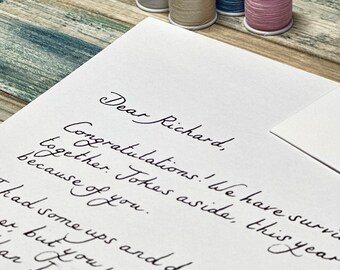 Dear Richard,
Congratulations! We have surviv
together. Jokes aside, this year
because of you.
had some ups and d
er, but you'